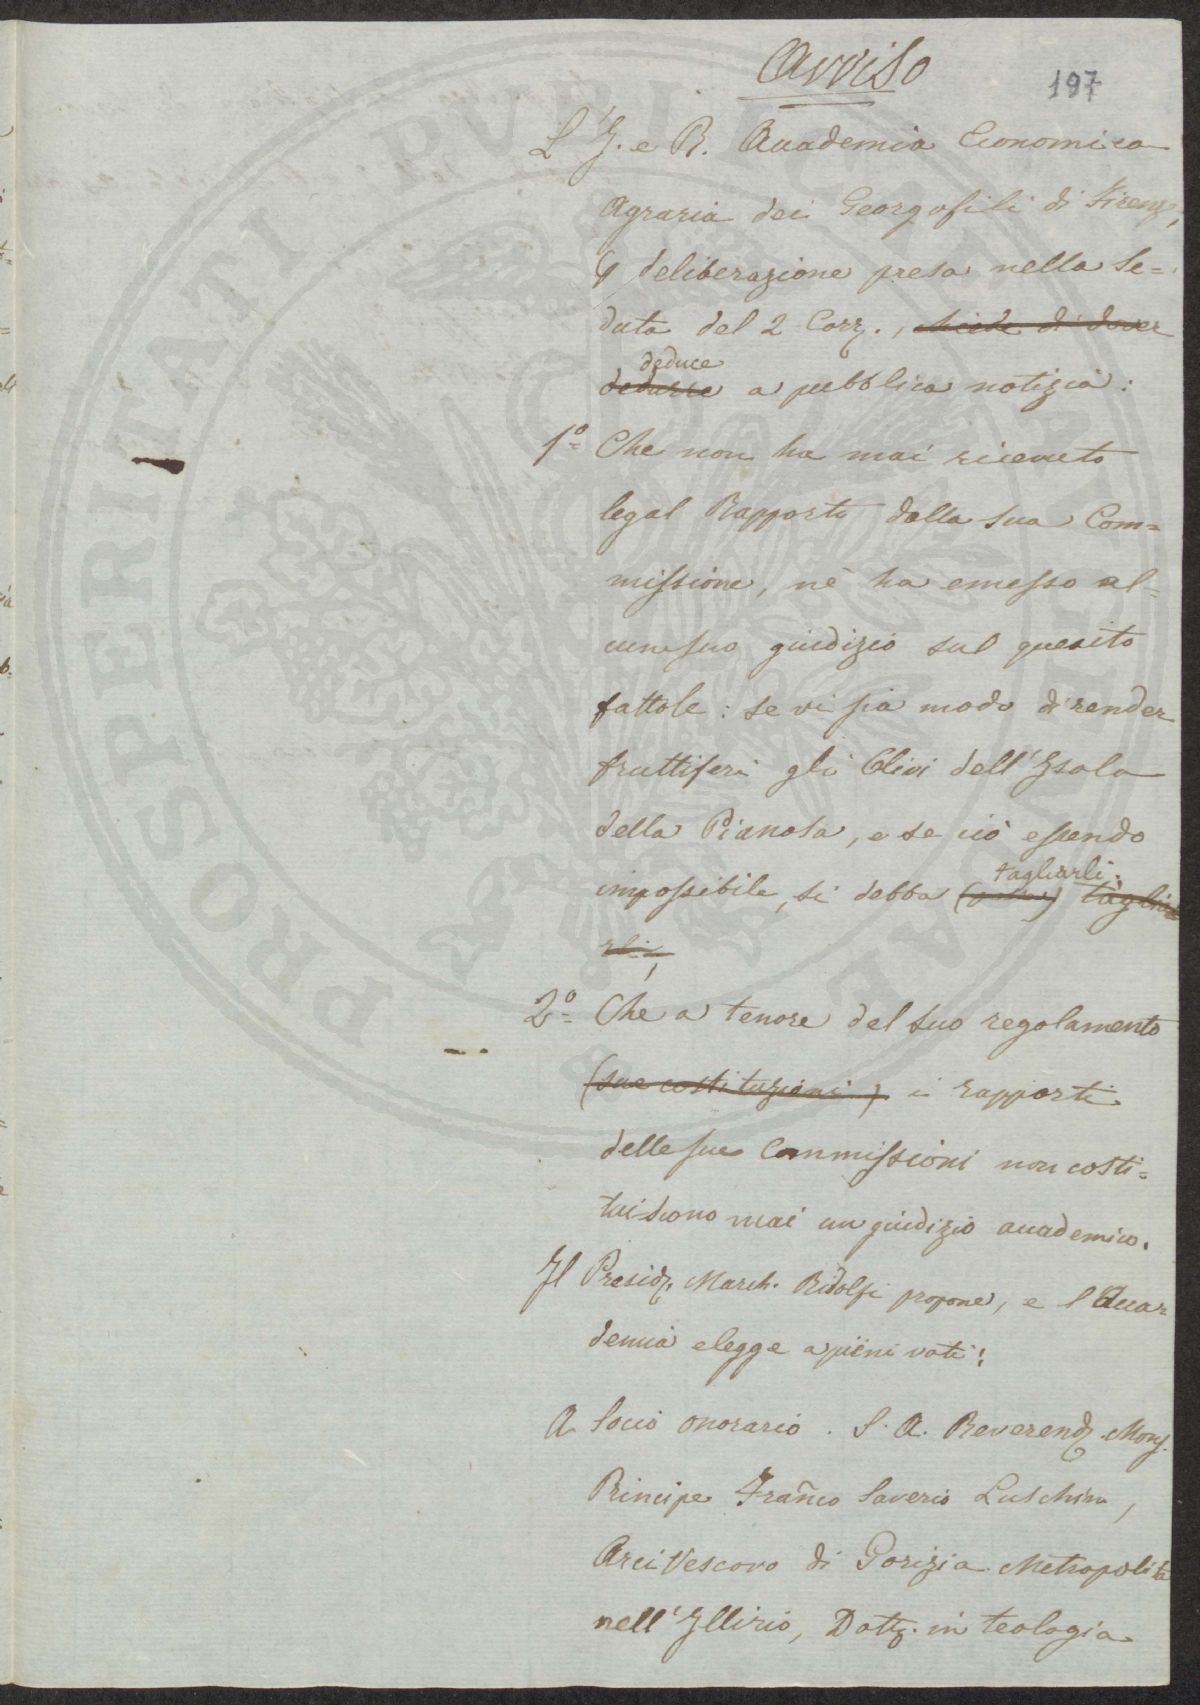 Avviso
197
L'I. e R. Accademia Economica
Agraria dei Georgofili di Firenze,
deliberazione presa nella Se=
duta del 2 Corr., crede di dover
deduce
dedurre a pubblica notizia:
1º Che non ha mai ricevuto
legal Rapporto dalla sua Com=
missione, nè ha emesso al=
cun suo giudizio sul quesito
fattole: se vi sia modo di render
fruttiferi gli Olivi dell'Isola
della Pianosa, e se ciò essendo
tagliarli;
impossibile, si debba taglia
rli;
2º Che a tenore del suo regolamento
(sue costituzioni) i rapporti
delle sue Commissioni non costi=
tuiscono mai un giudizio accademico.
Il Presid. March. Ridolfi propone, e l'Acca=
demia elegge a pieni voti:
A Socio onorario. S. A. Reverend. Mons.
Principe Franco Saverio Luschin,
Arcivescovo di Gorizia Metropolita
nell'Illirio, Dott. in teologia
PROSPERITATI PUBLICAE AUGENDAE